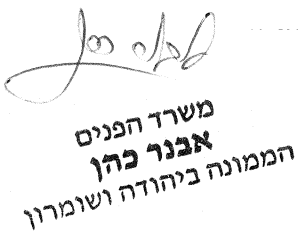 משרד הפנים
אבנר כהן
הממונה ביהודה ושומרון